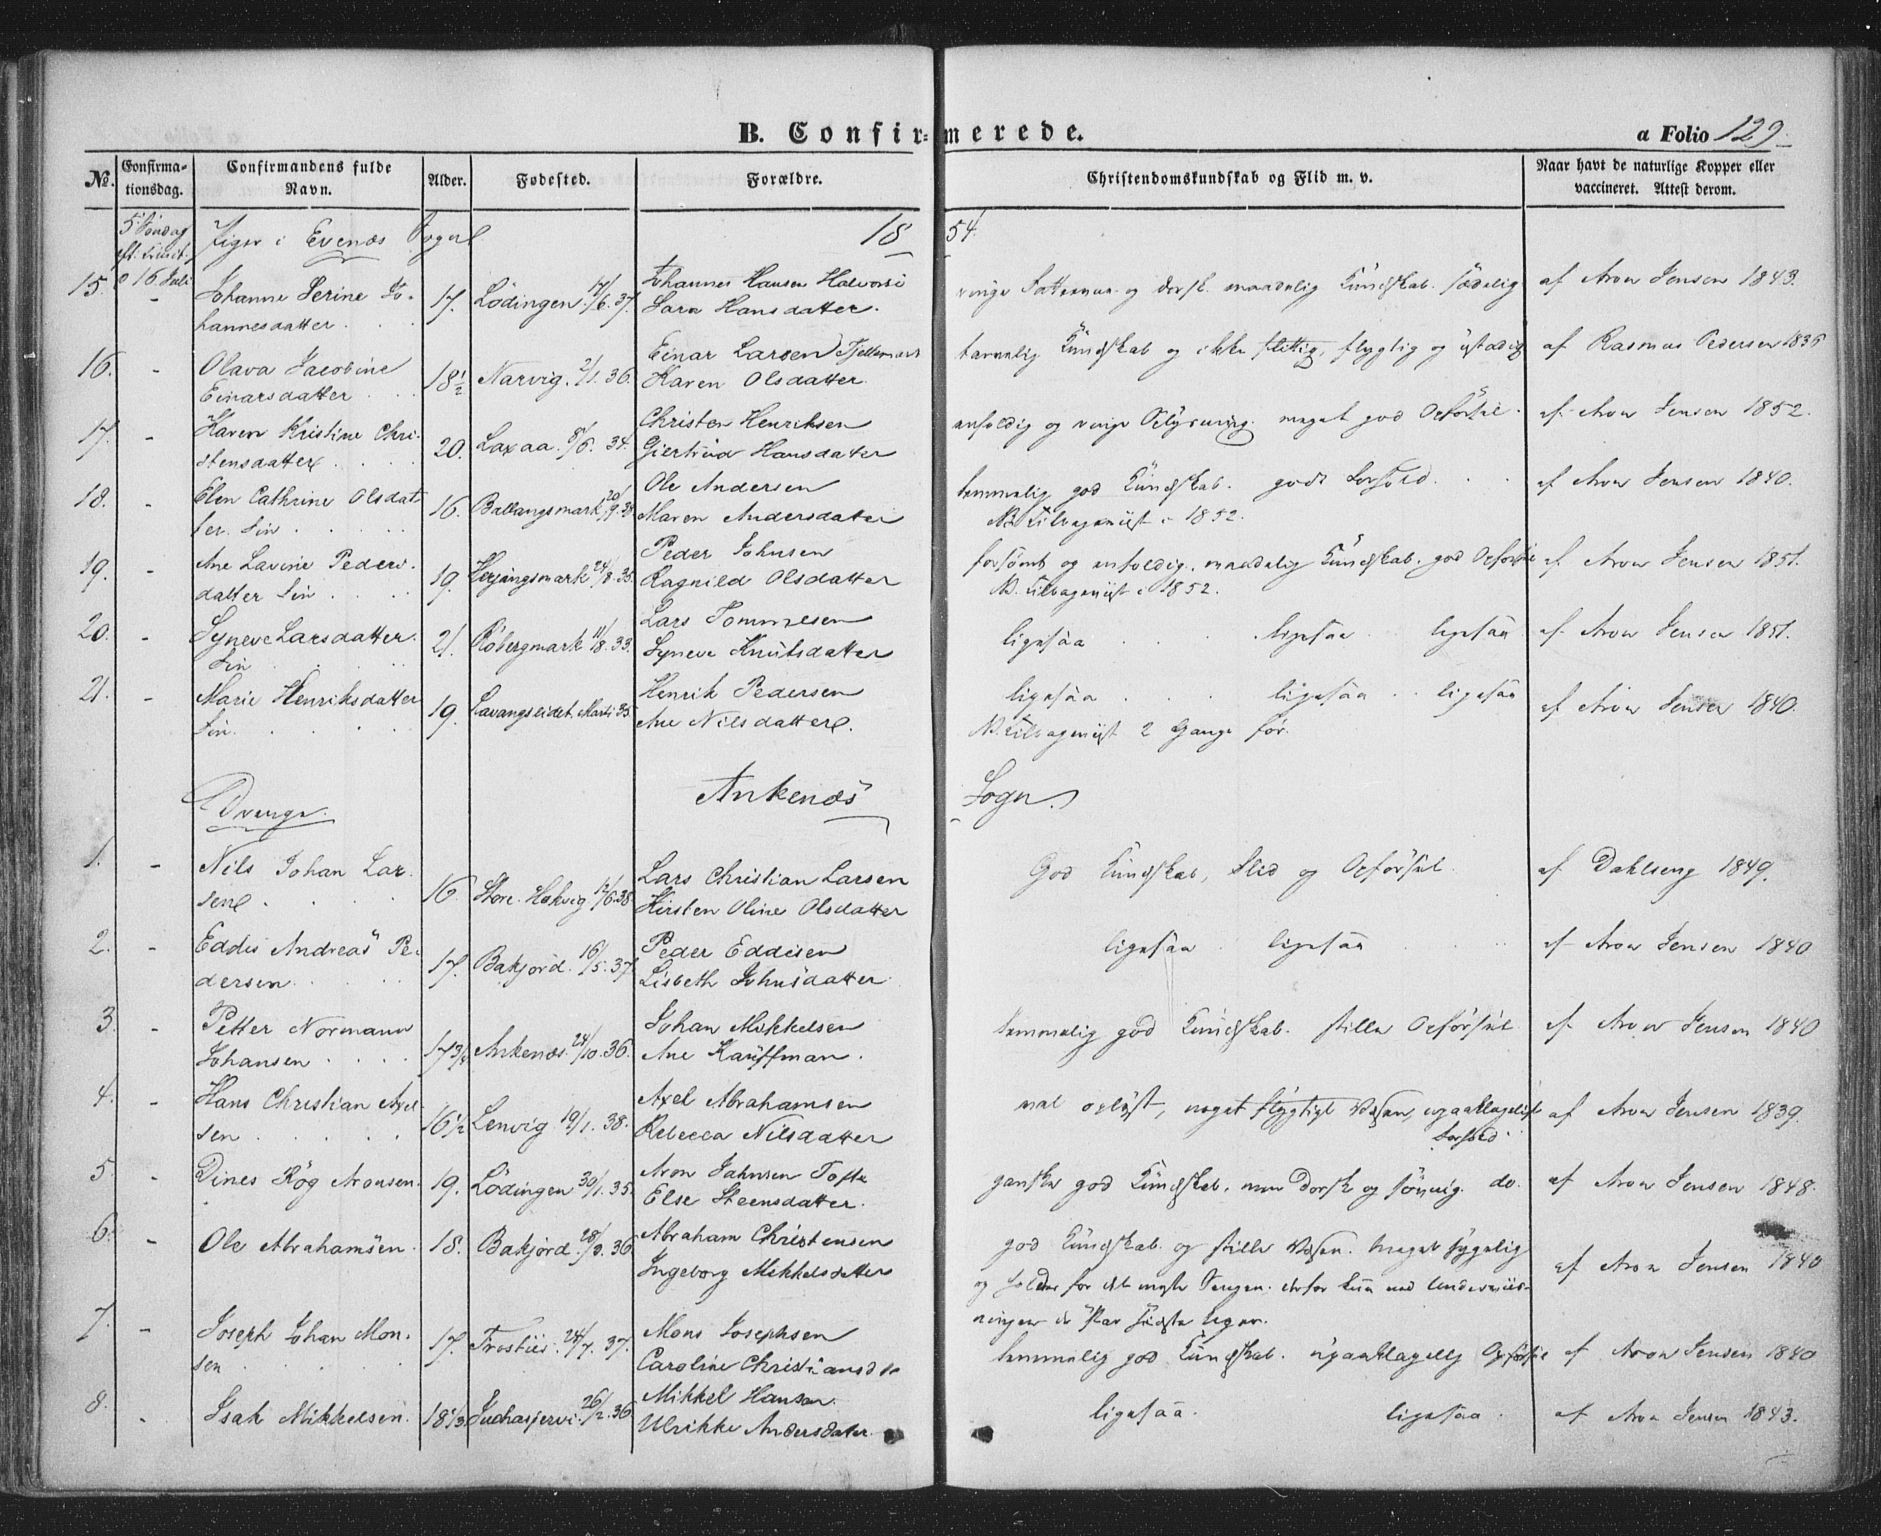 B. Confirmerede.
a Folio 129.
No. Confirmationsdag. Confirmandens fulde Navn. Alder. Fødested. Forældre. Christendomskundskab og Flid m. v. Naar havt de naturlige Kopper eller vaccineret. Attest derom.
5 Søndag eft. Trinit. d 16 Juli
Piger i Evenæs Sogn 1854.
15. - Johanne Serine Jo- 17. Lødingen 17/6. 37. Johannes Hansen Halvorsi ringe Fatteevne og dorsk. maadelig Kundskab. sædelig af Aron Jensen 1843.
hannesdatter. Sara Hansdatter.
16. - Olava Jacobine 18½ Narvig. 2/1. 36. Einar Larsen tarvelig Kundskab og ikke flittig, flygtig og ustadig af Rasmus Pedersen 1836
Einarsdatter Karen Olsdatter
17. - Karen Kristine Chri- 20. Laxaa. 8/6. 34. Christen Henriksen enfoldig og ringe Oplysning. meget god Opførsel. af Aron Jensen 1852.
stensdatter Giertrud Hansdatter
18. - Elen Cathrine Olsdat- 16. Ballangsmark 20/9. 38 Ole Andersen temmelig god Kundskab. godt Forhold. af Aron Jensen 1840.
ter. Fin Maren Andersdatter NB. tilbageviist i 1852.
19. - Ane Lavine Peders- 19. Herjangsmark 24/8. 35. Peder Johnsen forsømt og enfoldig. maadelig Kundskab. god Opførsel af Aron Jensen 1851.
datter Fin Ragnild Olsdatter NB. tilbageviist i 1852.
20. - Syneve Larsdatter. 21. Røbergmark 11/8. 33. Lars Tommesen ligesaa ligesaa ligesaa af Aron Jensen 1851.
Fin Syneve Knutsdatter
21. - Marie Henriksdatter 19. Lavangseidet. Marti 35. Henrik Pedersen ligesaa ligesaa ligesaa af Aron Jensen 1840.
Fin. Ane Nilsdatter. NB. tilbageviist 2 Gange før.
Ankenæs Sogn.
Drenge.
1. - Nils Johan Lar- 16. Store Hokvig 12/6 38. Lars Christian Larsen God Kundskab, Flid og Opførsel. af Dahlseng 1849.
sen Kirsten Oline Olsdatter
2. - Eddis Andreas Pe- 17. Bakjord. 16/5. 37. Peder Eddisen ligesaa ligesaa af Aron Jensen 1840
dersen. Lisbeth Johnsdatter
3. - Petter Normann 17¾ Ankenæs. 24/10. 36. Johan Mikkelsen temmelig god Kundskab. stille Opførsel af Aron Jensen 1840
Johansen Ane Kauffman.
4. - Hans Christian Axel- 16½ Lenvig 19/1. 38. Axel Abrahamsen vel oplyst, noget flygtigt Væsen, upaaklageligt af Aron Jensen 1839.
sen Rebecca Nilsdatter Forhold.
5. - Dines Røg Aronsen. 19. Lødingen 30/1. 35. Aron Jahnsen Tofte ganske god Kundskab, men dorsk og søvnig. do. af Aron Jensen 1848.
Else Steensdatter.
6. - Ole Abrahamsen. 18. Bakjord. 28/9. 36 Abraham Christensen god Kundskab. og stille Væsen. meget sygelig af Aron Jensen 1840
Ingeborg Mikkelsdatter og holder for det meste Sengen. derfor kun ved Underviis-
ningen de par sidste Uger.
7. - Joseph Johan Mon- 17. Frostiis. 24/7. 37. Mons Josephsen temmelig god Kundskab. upaaklagelig Opførsel af Aron Jensen 1840
sen Caroline Christiansd
8. - Isak Mikkelsen. 18⅓ Juchasjervi. 26/2. 36 Mikkel Hansen ligesaa. ligesaa. af Aron Jensen 1843.
Ulrikke Andersdatter